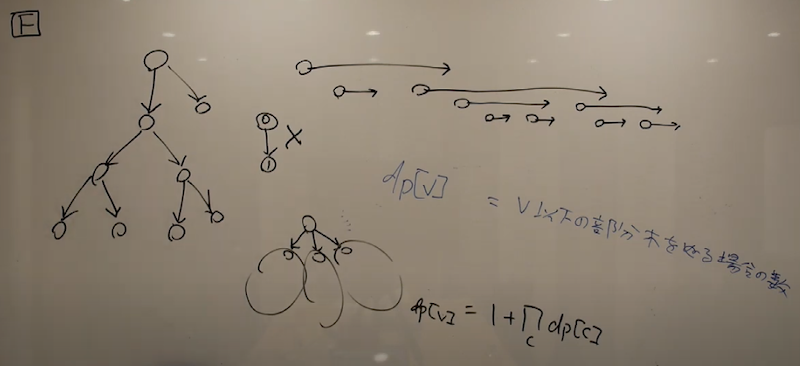 F
0
1
×
dp[v] = v以下の部分木を塗る場合の数
dp[v] = 1 + ∏ dp[c]
c